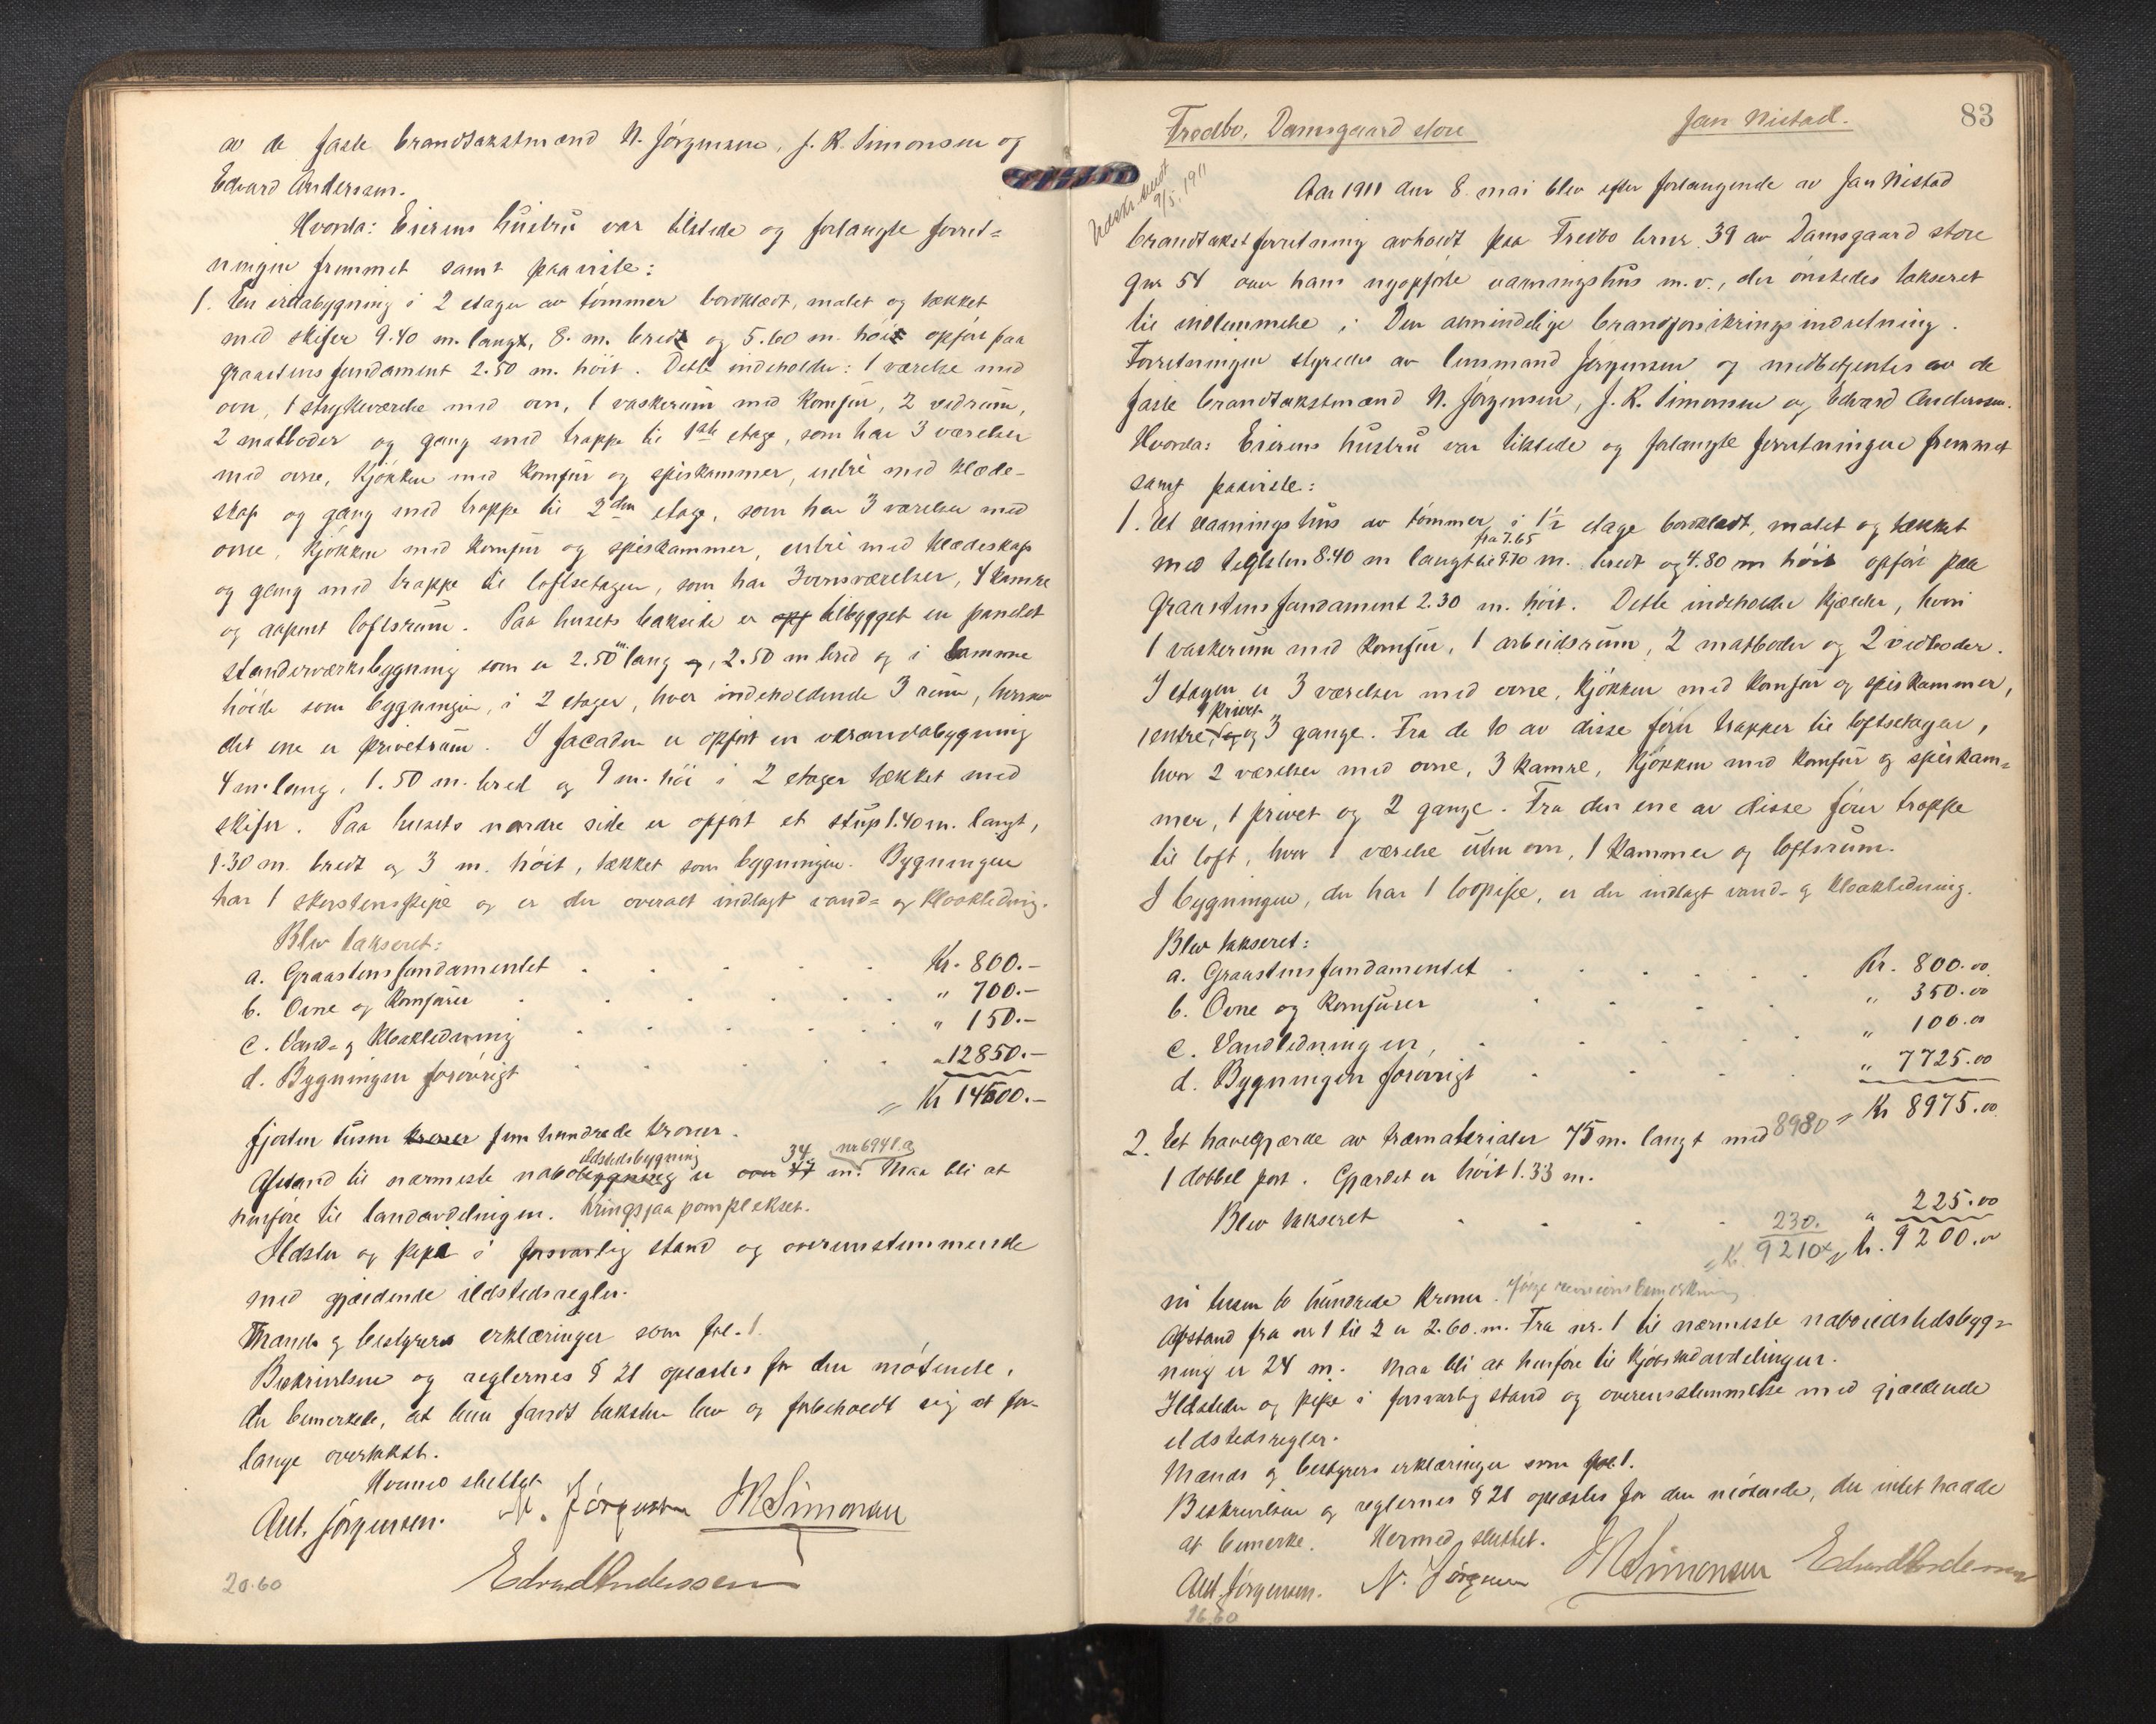 av de faste brandtakstmænd N. Jörgensen, J. R. Simonsen og
Edvard Anderssen.
Hvorda: Eierens hustru var tilstede og forlangte forret=
ningen fremmet samt paaviste:
1. En villabygning i 2 etager av tömmer bordklædt, malet og tækket
med skifer 9.40 m. langt, 8. m. bredt og 5.60 m. höit opfört paa
graastensfundament 2.50 m. höit. Dette indeholder: 1 værelse med
ovn, 1 strykeværelse med ovn, 1 vaskerum med komfur, 2 vedrum,
2 matboder og gang med trappe til 1ste etage, som har 3 værelser
med ovne, kjökken med komfur og spiskammer, entré med klæde-
skap og gang med trappe til 2den etage, som har 3 værelser med
ovne, kjökken med komfur og spiskammer, entré med klædeskap
og gang med trappe til loftsetagen, som har 3 ovnsværelser, 4 kamre
og aapent loftsrum. Paa husets bakside er opf tilbygget en panelet
standerværksbygning som er 2.50 m. lang og, 2.50 m bred og i samme
höide som bygningen, i 2 etager, hver indeholdende 3 rum, hvorav
det ene er privetrum. I facaden er opfört en verandabygning
4 m. lang, 1.50 m. bred og 9 m. höi i 2 etager tækket med
skifer. Paa husets nordre side er opfört et skup 1.40 m. langt,
1.30 m. bredt og 3 m. höit, tækket som bygningen. Bygningen
har 1 skorstenspipe og er der overalt indlagt vand= og kloakledning.
Blev takseret:
a. Graastensfundamentet . . . . . Kr. 800.-
b. Ovne og komfurer . . . . . " 700.-
c. Vand= og kloakledning . . . . . " 150.-
d. Bygningen forövrigt . . . . . " 12850.-
= Kr 14500.-
fjorten tusen kroner fem hundrede kroner.
Afstand til nærmeste nabobygning ildstedsbygning er 34 m. nr 6941.a Maa bli at
henföre til landavdelingen. Kringsjaa komplekset.
Ildsteder og pipe i forsvarlig stand og overensstemmende
med gjældende ildstedsregler.
Mands og bestyrers erklæringer som fol. 1.
Beskrivelsen og reglernes § 21 oplæstes for den mötende,
der bemerkede, at hun fandt taksten lav og forbeholdt sig at for-
lange overtakst.
Hermed sluttet
Ant. Jörgensen. N. Jörgensen JRSimonsen
Edvard Anderssen
20.60
83
Fredbo, Damsgaard store
Jan Nistad.
Utskr. sendt
9/5. 1911
Aar 1911 den 8. mai blev efter forlangende av Jan Nistad
brandtakstforretning avholdt paa Fredbo brnr. 39 av Damsgaard store
gnr 54 over hans nyopförte vaaningshus m.v., der önskedes takseret
til indlemmelse i Den almindelige brandforsikringsindretning.
Forretningen styredes av lensmand Jörgensen og medbetjentes av de
faste brandtakstmænd N. Jörgensen, J. R. Simonsen og Edvard Anderssen.
Hvorda: Eierens hustru var tilstede og forlangte forretningen fremmet
samt paaviste:
1. Et vaaningshus av tömmer i 1½ etage bordklædt, malet og tækket
med teglsten 8.40 m langt fra 7.65 til 8.70 m. bredt og 4.80 m höit opfört paa
Graastensfundament 2.30 m. höit. Dette indeholder kjælder, hvori
1 vaskerum med komfur, 1 arbeidsrum, 2 matboder og 2 vedboder.
I etagen er 3 værelser med ovne, kjökken med komfur og spiskammer,
1 entre, 1 privet og 3 gange. Fra de to av disse förer trapper til loftsetagen,
hvor 2 værelser med ovne, 3 kamre, kjökken med komfur og spiskam=
mer, 1 privet og 2 gange. Fra den ene av disse förer trappe
til loft, hvor 1 værelse uten ovn, 1 kammer og loftsrum.
I bygningen, der har 1 löpipe, er der indlagt vand- og kloakledning.
Blev takseret:
a. Graastensfundamentet . . . . . Kr. 800.00
b. Ovne og komfurer . . . . " 350.00
c. Vandledningen, . . . . . " 100.00
d. Bygningen forövrigt . . . . " 7725.00
8980 = Kr 8975.00
2. Et havegjærde av træmaterialer 75 m. langt med
1 dobbel port. Gjærdet er höit 1.33 m.
Blev takseret . . . . 230. " 225.00
= Kr. 9210 = Kr. 9200.00
ni tusen to hundrede kroner. ifölge revisionsbemerkning
Afstand fra nr 1 til 2 er 2.60. m. Fra nr. 1 til nærmeste naboildstedsbygg=
ning er 24 m. Maa bli at henföre til kjöbstadavdelingen.
Ildsteder og pipe i forsvarlig stand og overensstemmelse med gjældende
ildstedsregler.
Mands og bestyrers erklæringer som fol 1.
Beskrivelsen og reglernes § 21 oplæstes for den mötende, der intet hadde
at bemerke. Hermed sluttet.
Ant. Jörgensen. N. Jörgensen JRSimonsen Edvard Anderssen
16.60